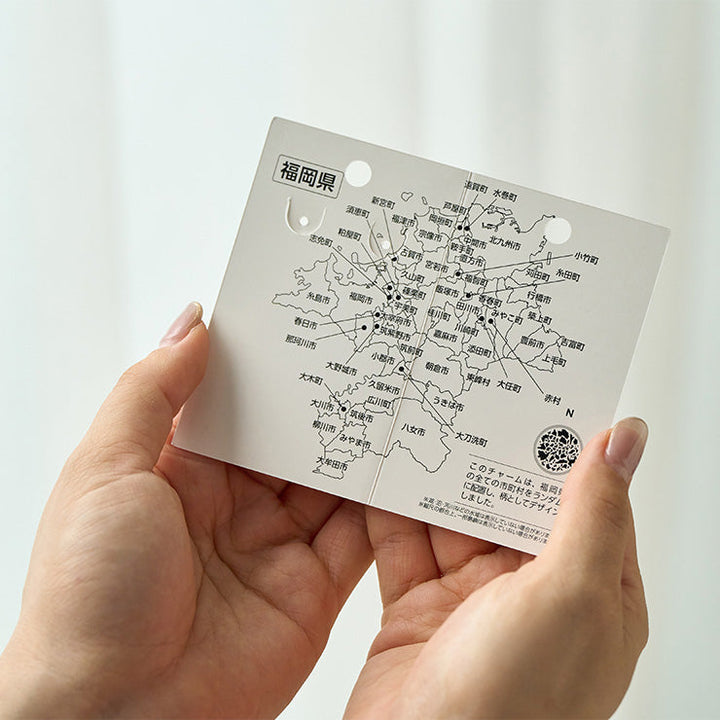 福岡県
遠賀町
水巻町
新宮町
芦屋町
須恵町
福津市
岡垣町
中間市
北九州市
粕屋町
宗像市
鞍手町
小竹町
志免町
古賀市
宮若市
直方市
苅田町
糸田町
久山町
福智町
行橋市
篠栗町
飯塚市
香春町
糸島市
福岡市
宇美町
桂川町
田川市
みやこ町
築上町
春日市
太宰府市
川崎町
那珂川市
筑紫野市
嘉麻市
豊前市
吉富町
筑前町
添田町
上毛町
大野城市
小郡市
朝倉市
東峰村
大任町
赤村
大木町
久留米市
うきは市
大川市
広川町
筑後市
N
柳川市
みやま市
八女市
大刀洗町
大牟田市
このチャームは、福岡県
の全ての市町村をランダム
に配置し、柄としてデザイン
しました。
※湖・沼・川などの水域は表示していない場合があります
※縮尺の都合上、一部島嶼は表示していない場合がありま